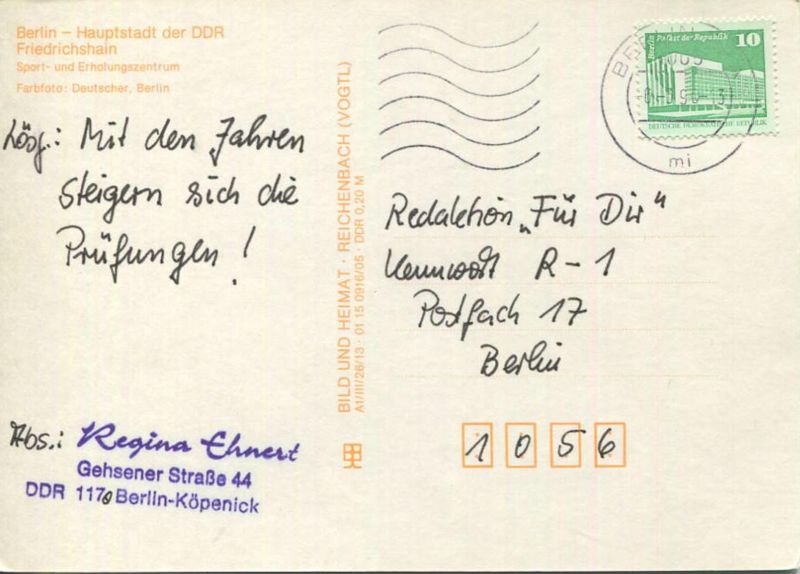 Berlin – Hauptstadt der DDR
Friedrichshain
Sport- und Erholungszentrum
Farbfoto: Deutscher, Berlin
Lösg.: Mit den Jahren
steigern sich die
Prüfungen!
Abs.: Regina Ehnert
Gehsener Straße 44
DDR 1170 Berlin-Köpenick
BILD UND HEIMAT · REICHENBACH (VOGTL)
A1/III/26/13 · 01 15 0916/05 · DDR 0,20 M
Berlin Palast der Republik 10
DEUTSCHE DEMOKRATISCHE REPUBLIK
mi
Redaktion „Für Dir"
Kennwort R-1
Postfach 17
Berlin
1056